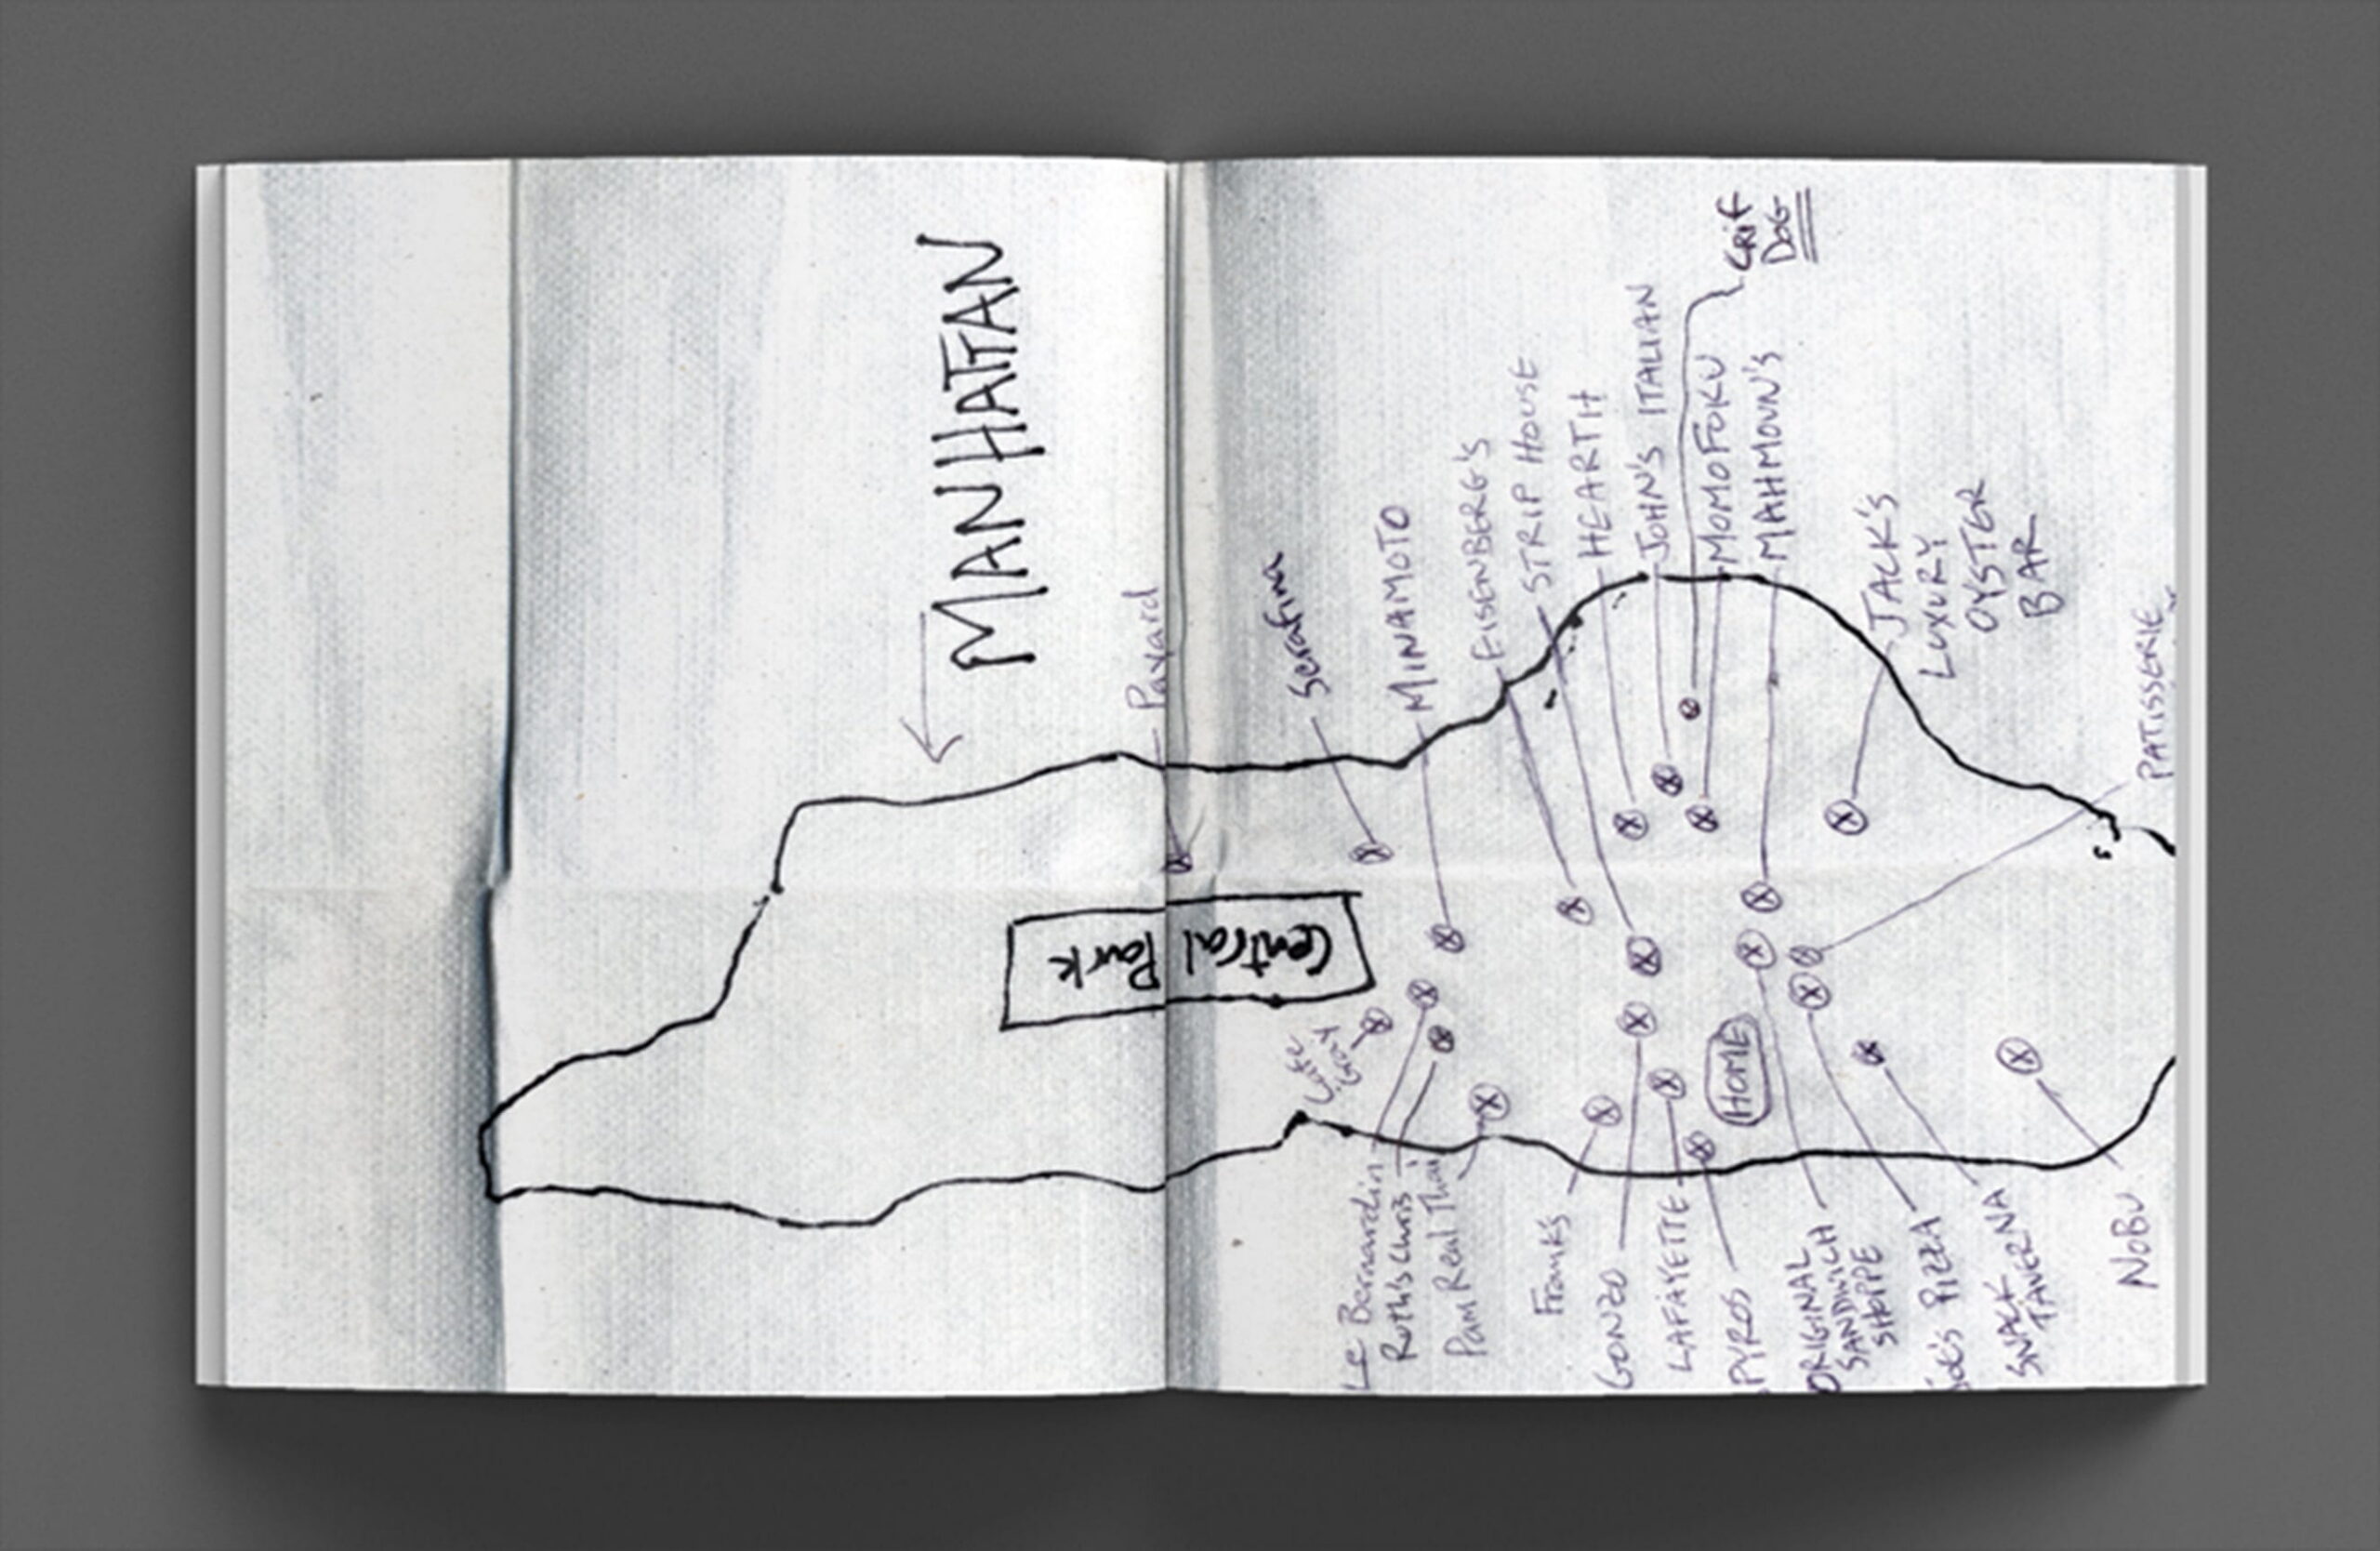 MANHATTAN
Payard
Serafina
MINAMOTO
EISENBERG'S
STRIP HOUSE
HEARTH
JOHN'S ITALIAN
Crif
Dog
MOMOFUKU
MAHMOUN'S
JACK'S
LUXURY
OYSTER
BAR
PATISSERIE
Central Park
HOME
Cafe
Gray
Le Bernardin
Ruth's Chris
Pam Real Thai
Frank's
GONZO
LAFAYETTE
PYROS
ORIGINAL
SANDWICH
SHOPPE
Joe's PIZZA
SNACK
TAVERNA
NOBU